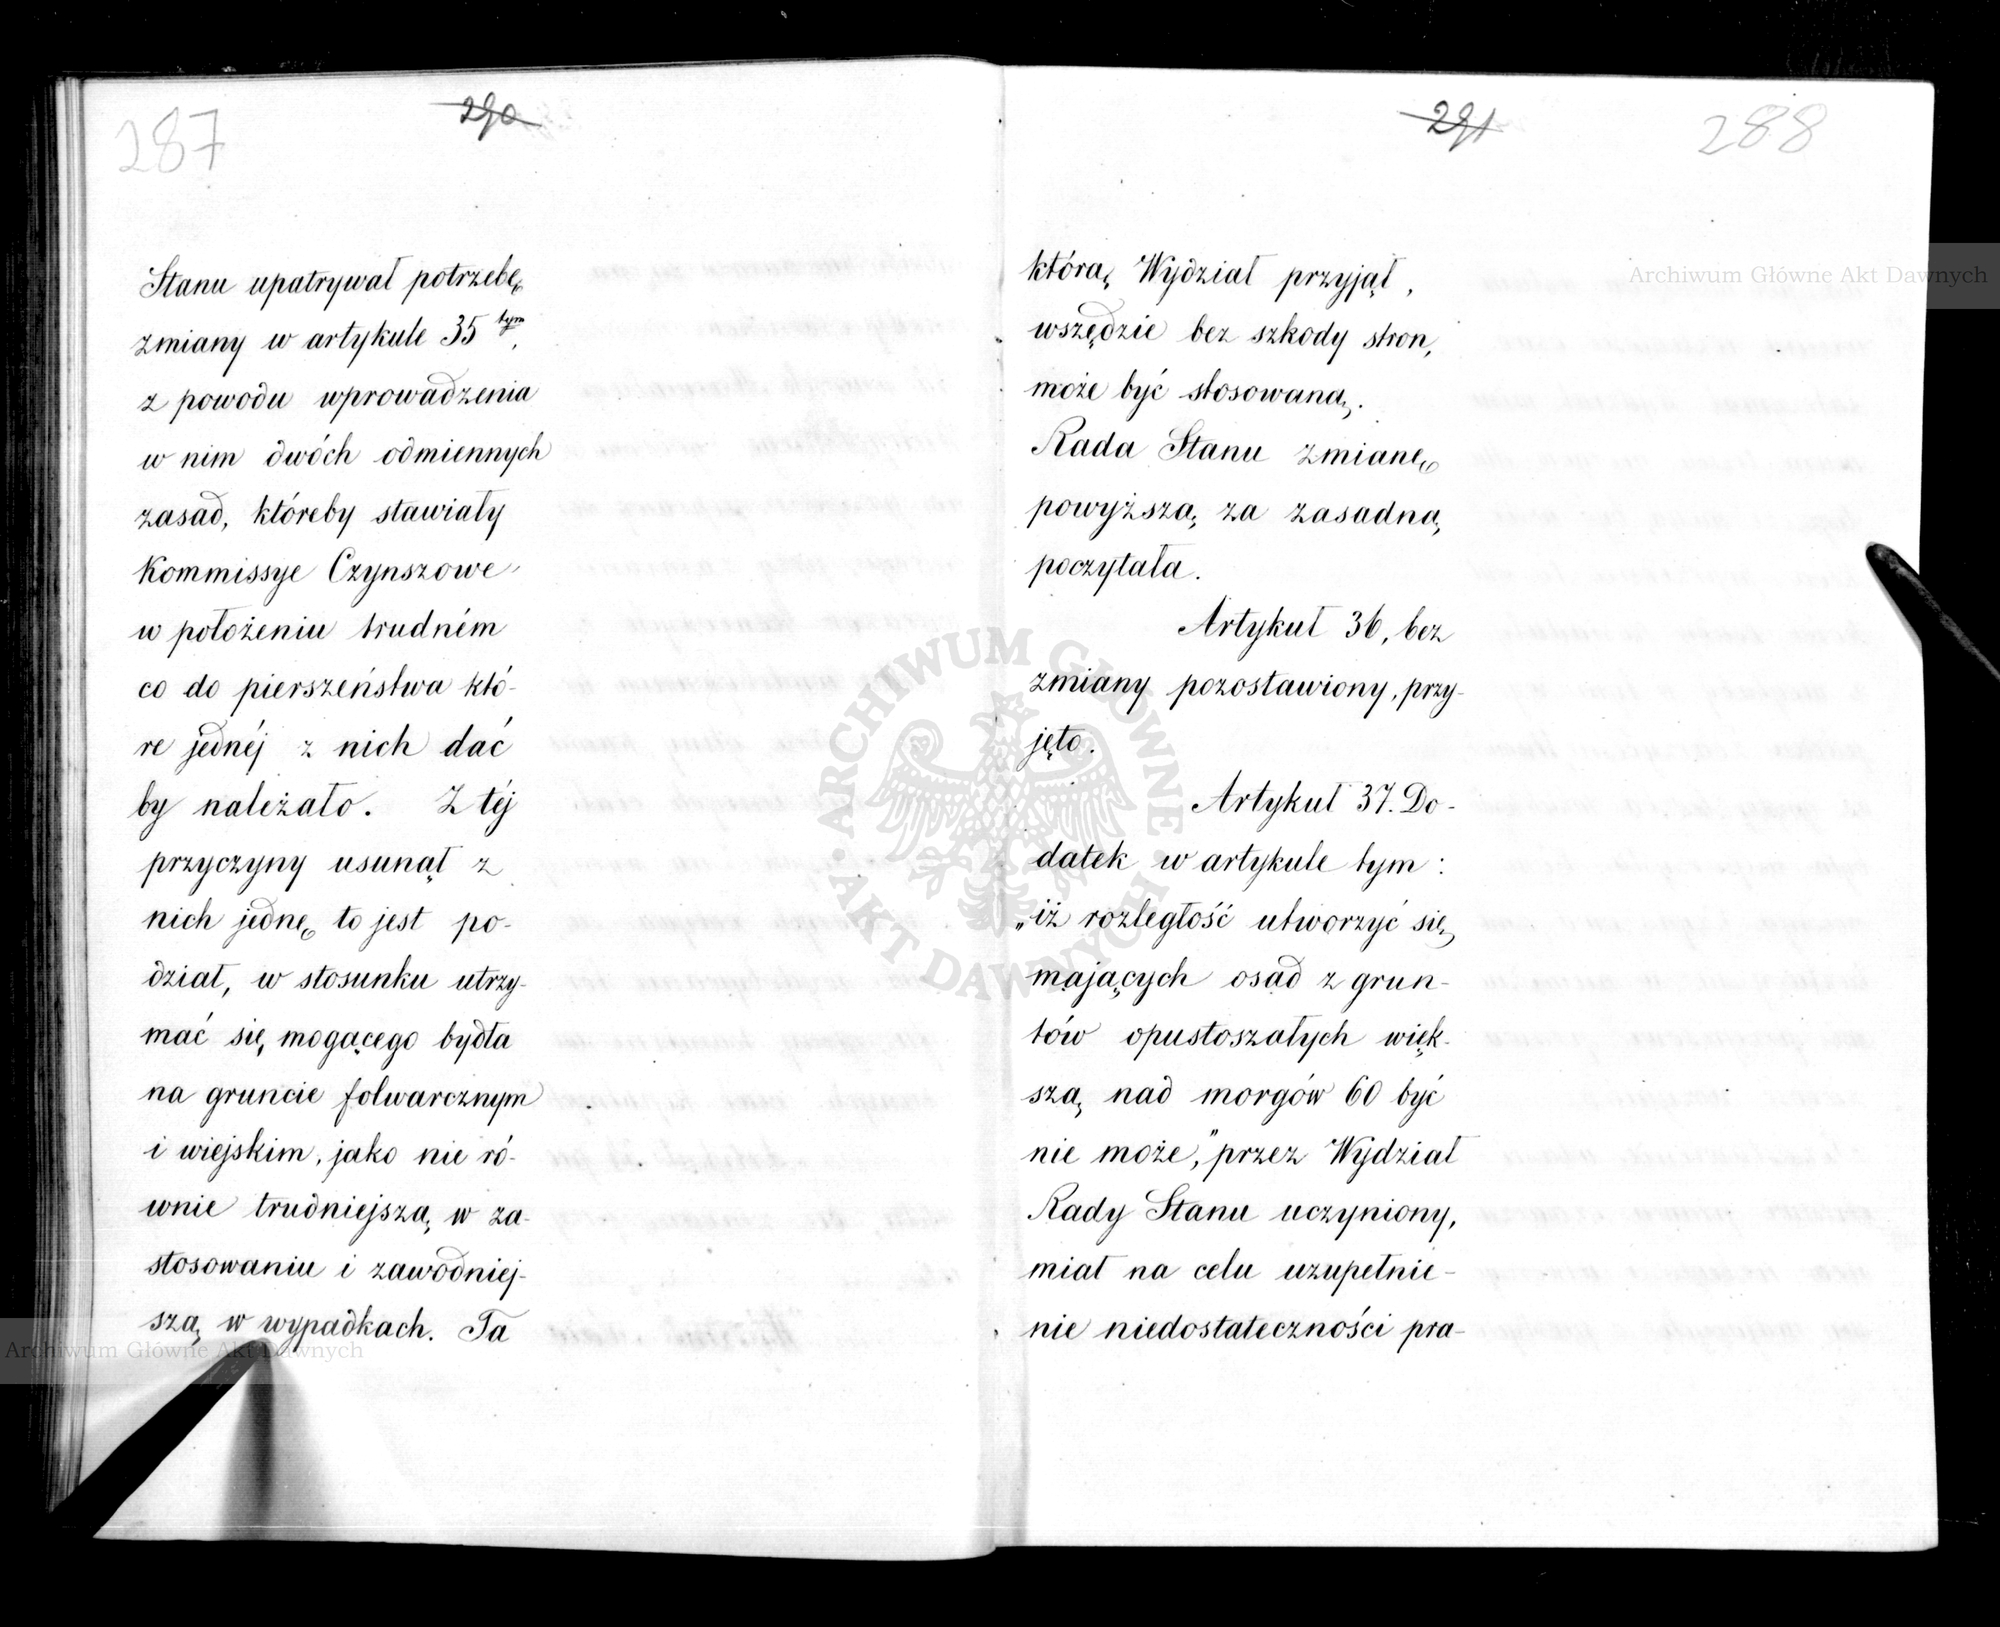 287
290
Stanu upatrywał potrzebę
zmiany w artykule 35 tym,
z powodu wprowadzenia
w nim dwóch odmiennych
zasad, któreby stawiały
Kommissye Czynszowe
w położeniu trudném
co do pierszeństwa któ-
re jednéj z nich dać
by należało. Z téj
przyczyny usunął z
nich jednę to jest po-
dział, w stosunku utrzy-
mać się mogącego bydła
na gruncie folwarcznym
i wiejskim, jako nie ró-
wnie trudniejszą w za-
stosowaniu i zawodniej-
szą w wypadkach. Ta
Archiwum Główne Akt Dawnych
291
288
Archiwum Główne Akt Dawnych
którą Wydział przyjął,
wszędzie bez szkody stron,
może być stosowaną.
Rada Stanu zmianę
powyższą za zasadną
poczytała.
Artykuł 36, bez
zmiany pozostawiony, przy-
jęto.
Artykuł 37. Do-
datek w artykule tym:
„iż rozległość utworzyć się
mających osad z grun-
tów opustoszałych więk-
szą nad morgów 60 być
nie może," przez Wydział
Rady Stanu uczyniony,
miał na celu uzupełnie-
nie niedostateczności pra-
ARCHIWUM GŁÓWNE
AKT DAWNYCH